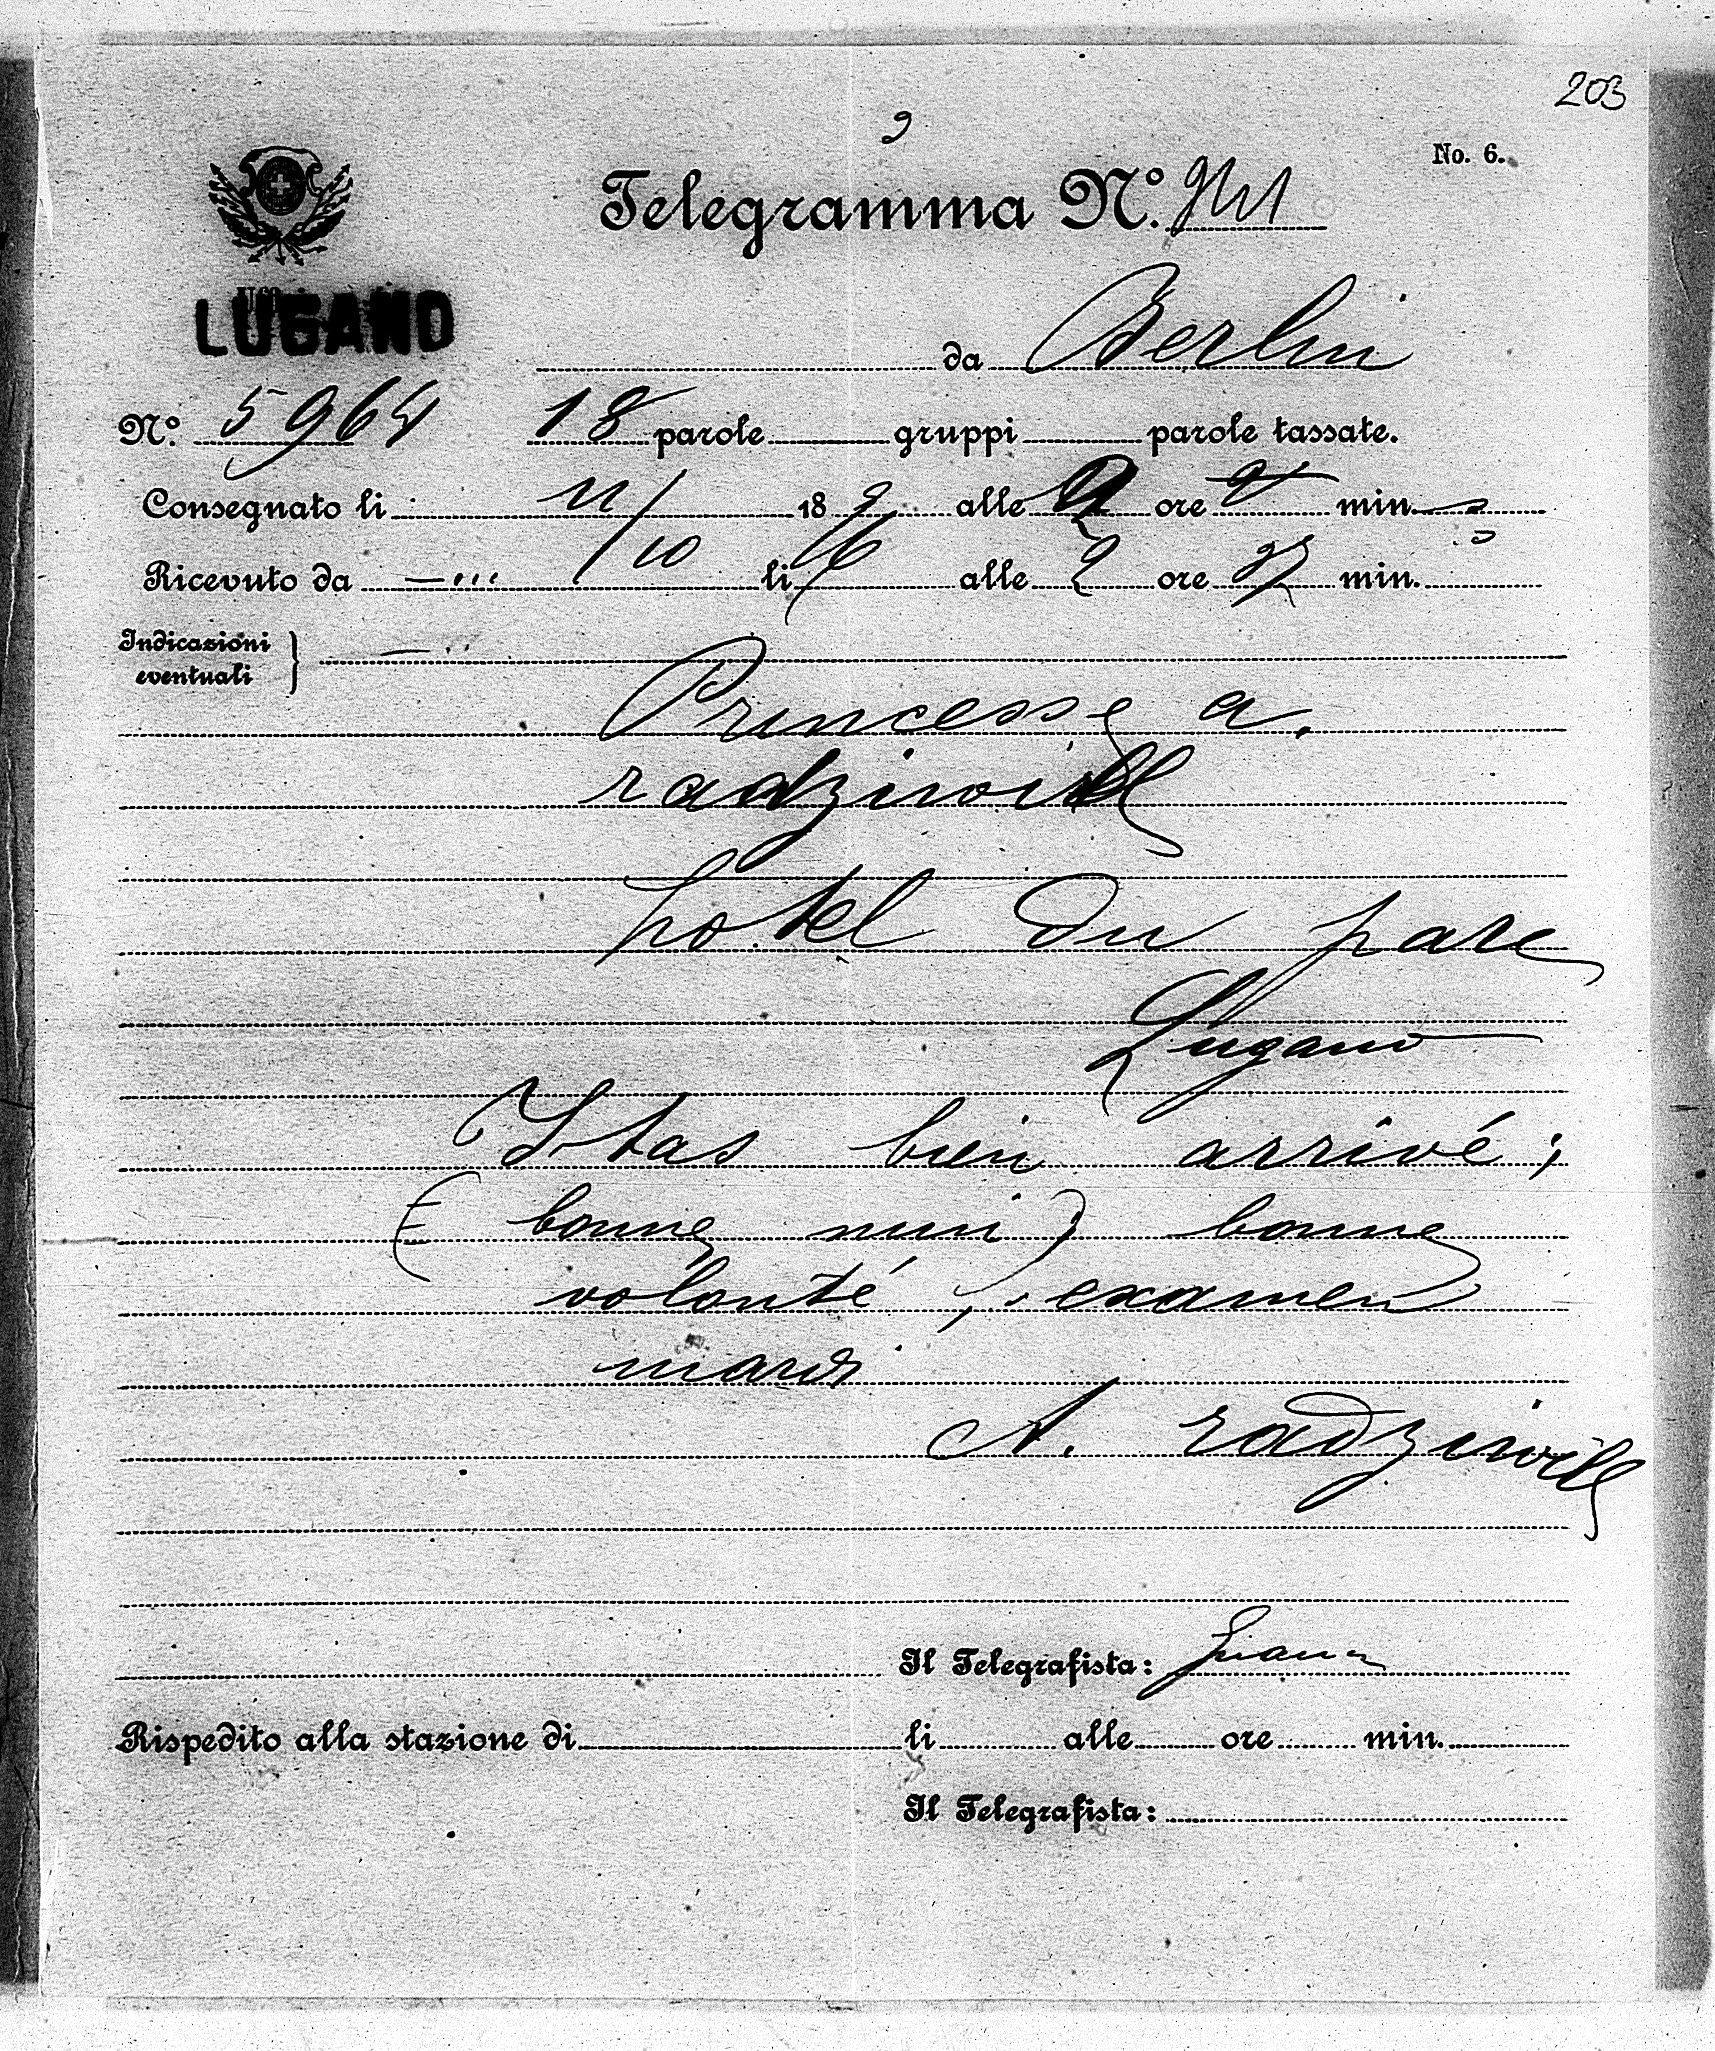 203
No. 6.
Telegramma No.
LUGANO
da Berlin
No. 5964 18 parole gruppi parole tassate.
Consegnato li 11/10 189 alle ore min.
Ricevuto da li alle ore min.
Indicazioni
eventuali
Princesse a.
radziwill
hotel du parc
Lugano
Stas bien arrivé;
( bonne mini ) bonne
volonté, examen
mardi
A. radziwill
Il Telegrafista:
Rispedito alla stazione di li alle ore min.
Il Telegrafista: